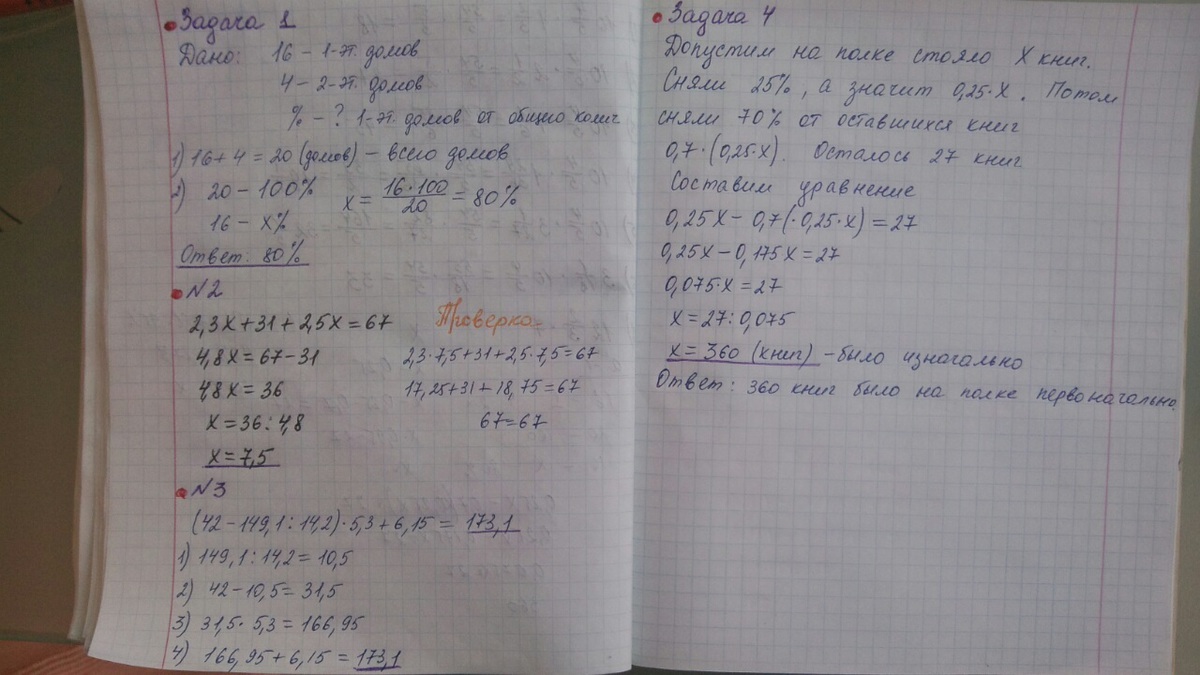 Задача 1
Дано: 16 - 1-эт. домов
4 - 2-эт. домов
% - ? 1-эт. домов от общего колич
1) 16 + 4 = 20 (домов) - всего домов
2) 20 - 100% x = 16·100/20 = 80%
16 - x%
Ответ: 80%
N2
2,3x+31+2,5x=67
4,8x=67-31
4,8x=36
x=36:4,8
x=7,5
Проверка
2,3·7,5+31+2,5·7,5=67
17,25+31+18,75=67
67=67
N3
(42-149,1:14,2)·5,3+6,15= 173,1
1) 149,1:14,2=10,5
2) 42-10,5=31,5
3) 31,5·5,3=166,95
4) 166,95+6,15=173,1
Задача 4
Допустим на полке стояло X книг.
Сняли 25%, а значит 0,25·X. Потом
сняли 70% от оставшихся книг
0,7·(0,25·X). Осталось 27 книг
Составим уравнение
0,25X-0,7(·0,25·X)=27
0,25X-0,175X=27
0,075·X=27
X=27:0,075
X=360 (книг) - было изначально
Ответ: 360 книг было на полке первоначально.